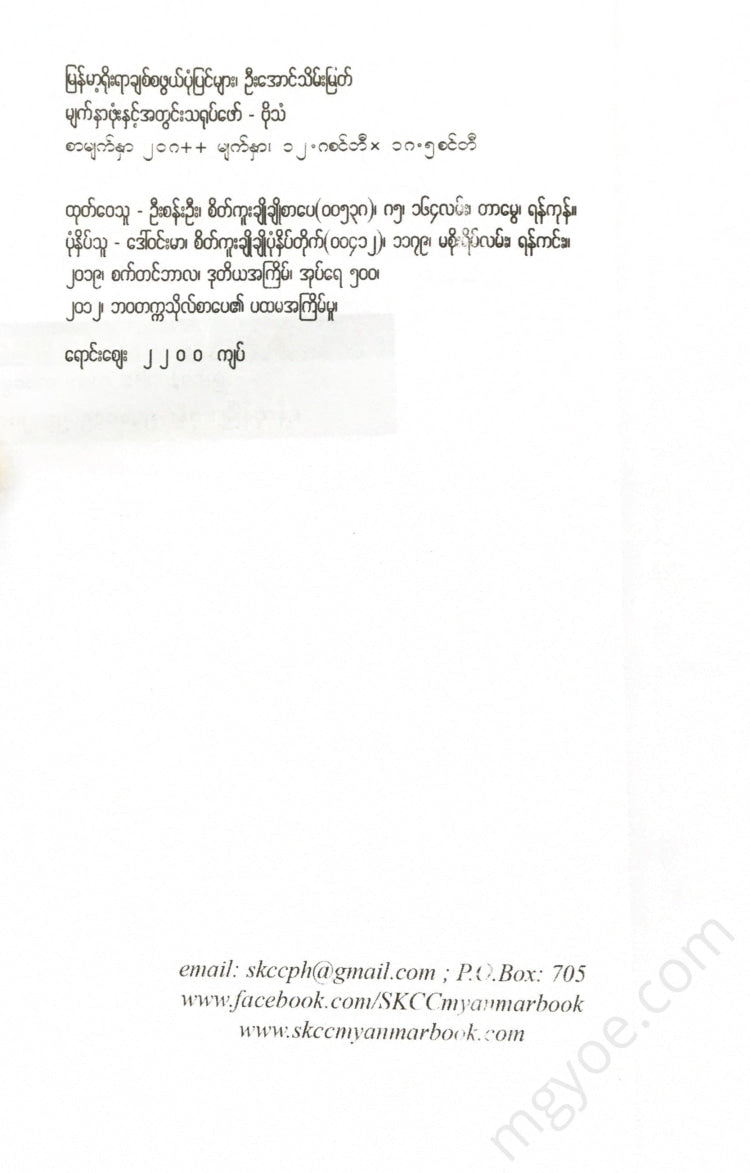 မြန်မာ့ရိုးရာချစ်စဖွယ်ပုံပြင်များ၊ ဦးအောင်သိမ်းမြတ်
မျက်နှာဖုံးနှင့်အတွင်းသရုပ်ဖော် - ဗိုသံ
စာမျက်နှာ ၂၁၈++ မျက်နှာ၊ ၁၂.၈စင်တီ× ၁၈.၅စင်တီ
ထုတ်ဝေသူ - ဦးစန်းဦး၊ စိတ်ကူးချိုချိုစာပေ(၀၀၅၃၈)၊ ၈၅၊ ၁၆၄လမ်း၊ တာမွေ၊ ရန်ကုန်။
ပုံနှိပ်သူ - ဒေါ်ဝင်းမာ၊ စိတ်ကူးချိုချိုပုံနှိပ်တိုက်(၀၀၄၁၂)၊ ၁၁၇၉၊ မစိုးရိပ်လမ်း၊ ရန်ကင်း။
၂၀၁၉၊ စက်တင်ဘာလ၊ ဒုတိယအကြိမ်၊ အုပ်ရေ ၅၀၀၊
၂၀၁၂၊ ဘဝတက္ကသိုလ်စာပေ၏ ပထမအကြိမ်မူ၊
ရောင်းဈေး ၂၂၀၀ ကျပ်
email: skccph@gmail.com ; P.O.Box: 705
www.facebook.com/SKCCmyanmarbook
www.skccmyanmarbook.com
mgyoe.com